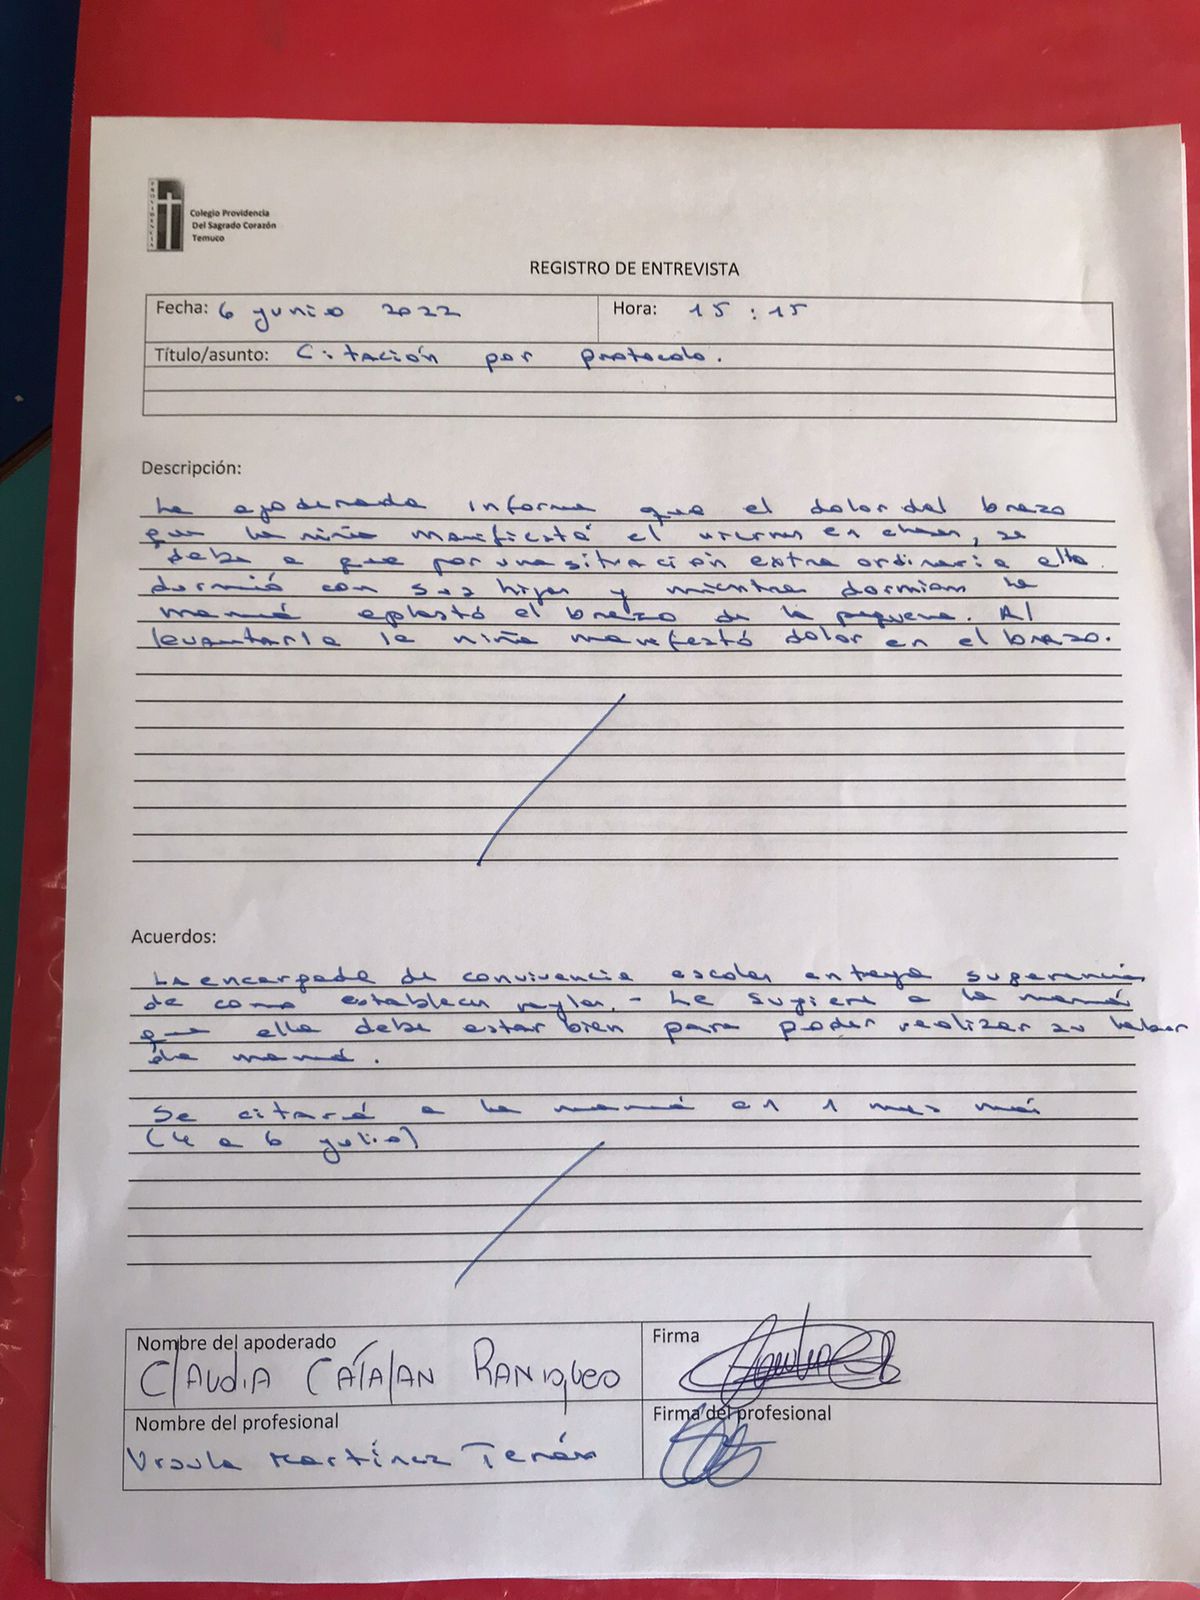 PROVIDENCIA
Colegio Providencia
Del Sagrado Corazón
Temuco
REGISTRO DE ENTREVISTA
Fecha: 6 junio 2022 Hora: 15:15
Título/asunto: Citación por protocolo.
Descripción:
La apoderada informa que el dolor del brazo
que la niña manifestó el viernes en clases, se
debe a que por una situación extra ordinaria ella
durmió con sus 2 hijas y mientras dormían la
mamá aplastó el brazo de la pequeña. Al
levantarla la niña manifestó dolor en el brazo.
Acuerdos:
La encargada de convivencia escolar entrega sugerencias
de como establecer reglas. - Le sugiere a la mamá
que ella debe estar bien para poder realizar su labor
de mamá.
Se citará a la mamá en 1 mes más
(4 a 6 julio)
Nombre del apoderado Firma
Claudia Catalan Raniqueo
Nombre del profesional Firma del profesional
Ursula Martínez Terán